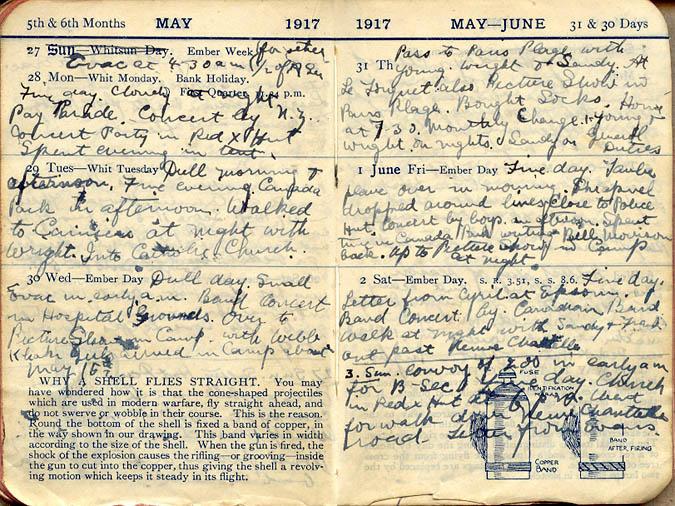 5th & 6th Months MAY 1917
27 Sun—Whitsun Day. Ember Week
Evac at 4.30 am
28 Mon—Whit Monday. Bank Holiday.
Fine day. Cloudy First Quarter p.m.
Pay Parade. Concert by N.Z.
Concert Party in Red X Hut
Spent evening in tent.
29 Tues—Whit Tuesday Dull morning &
afternoon. Fine evening. Canada
Park in afternoon. Walked
to at night with
Wright. Into Catholic Church.
30 Wed—Ember Day Dull day. Small
Evac in early a.m. Band Concert
in Hospital Grounds. Over to
Picture Show in Camp with Webb
Khaki arrived in Camp about
May 15th
WHY A SHELL FLIES STRAIGHT. You may
have wondered how it is that the cone-shaped projectiles
which are used in modern warfare, fly straight ahead, and
do not swerve or wobble in their course. This is the reason.
Round the bottom of the shell is fixed a band of copper, in
the way shown in our drawing. This band varies in width
according to the size of the shell. When the gun is fired, the
shock of the explosion causes the rifling—or grooving—inside
the gun to cut into the copper, thus giving the shell a revolv-
ing motion which keeps it steady in its flight.
1917 MAY—JUNE 31 & 30 Days
Pass to Paris Plage with
31 Th Young. Wright & Sandy. At
Le Touquet also Picture Show in
Paris Plage. Bought Socks. Home
at 7.30. Monthly Change. Young &
Wright on nights. Sandy on General
Duties
1 June Fri—Ember Day Fine day. Taube
plane over in morning. Shrapnel
dropped around lines close to Police
Hut. Concert by boys in afternoon. Spent
time in Canada Hut writing. Bill Morrison
back. Up to Picture show in Camp
at night
2 Sat—Ember Day. S. R. 3.51, S. S. 8.6. Fine day.
Letter from Cyril at Epsom.
Band Concert by Canadian Band
Walk at night with Sandy & Frank
out past
3. Sun. Convoy of 280 in early am
for B-Sec. Fine day. Church
in Red X Hut
for walk down
road. Letter from Evans
FUSE
IDENTIFICATION
COPPER
BAND
BAND
AFTER FIRING